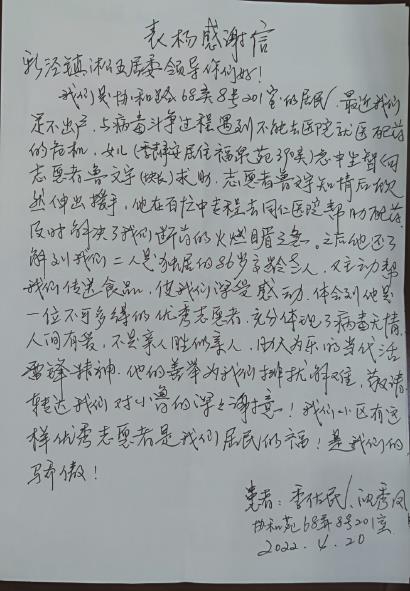 表扬感谢信
新泾镇淞虹居委领导你们好！
我们是协和路68弄8号201室的居民，最近我们
足不出户，与病毒斗争过程遇到不能去医院就医配药
的危机，女儿(居住福泉苑390弄)忠中生智向
志愿者鲁文宇求助，志愿者鲁文宇知情后欣
然伸出援手，他在百忙中专程去同仁医院帮助配药，
及时解决了我们断药的火燃眉之急。之后他还了
解到我们二人是独居的86岁高龄老人，又主动帮
我们传送食品，使我们深受感动，体会到他是
一位不可多得的优秀志愿者，充分体现了病毒无情，
人间有爱，不是亲人胜似亲人，助人为乐的当代活
雷锋精神。他的善举为我们排忧解难，敬请
转达我们对小鲁的深深谢意！我们小区有这
样优秀志愿者是我们居民们的福！是我们的
骄傲！
患者：季佑民、沈秀凤
协和苑68弄8号201室
2022.4.20